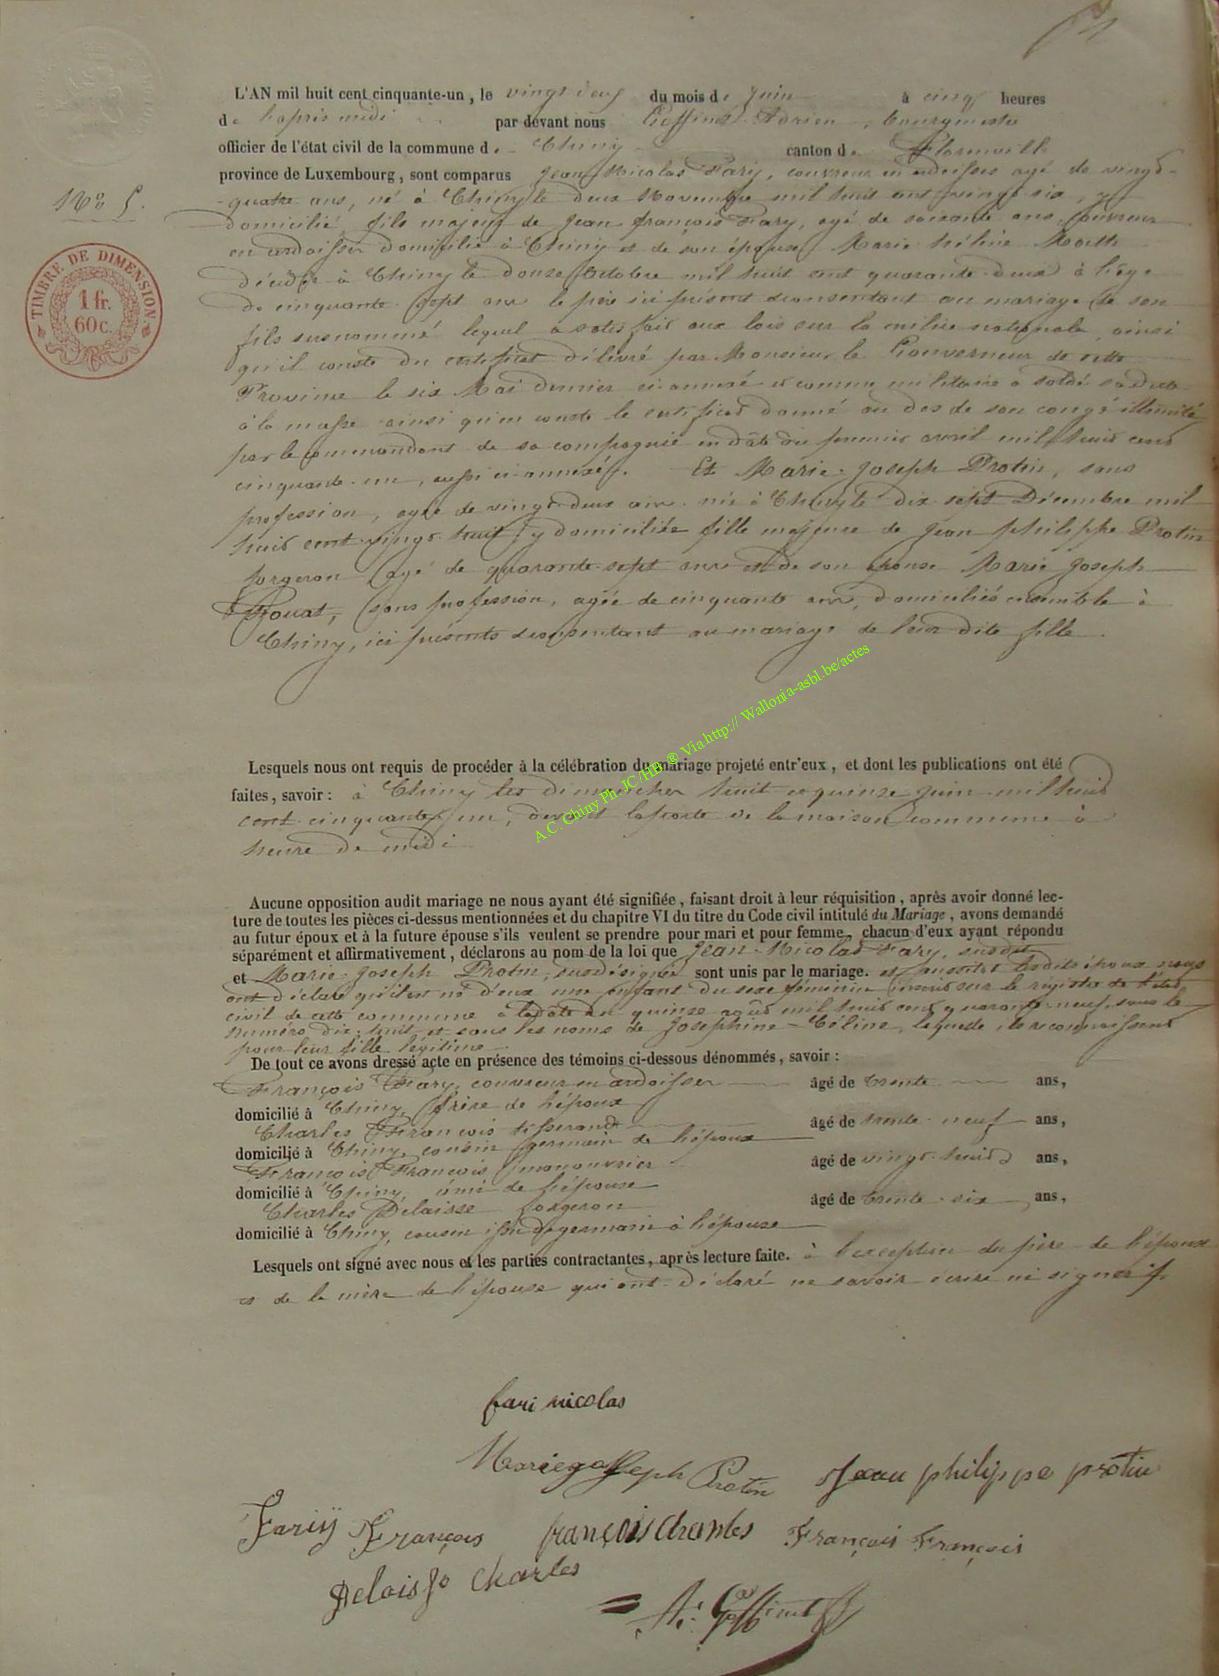 L'AN mil huit cent cinquante-un, le vingt deux du mois de juin à cinq heures
de l'après midi par devant nous Goffinet Adrien, bourgmestre
officier de l'état civil de la commune de Chiny canton de Florenville
province de Luxembourg, sont comparus Jean Nicolas Fary, couvreur en ardoises agé de vingt-
No 5.
-quatre ans, né à Chiny le deux Novembre mil huit cent vingt six, y
domicilié, fils majeur de Jean françois Fary, agé de soixante ans, couvreur
en ardoises domicilié à Chiny et de son épouse Marie hélène
décédée à Chiny le douze Octobre mil huit cent quarante deux à l'âge
TIMBRE DE DIMENSION.
1 fr.
60c.
de cinquante sept ans le père ici présent et consentant au mariage de son
fils susnommé lequel a satisfait aux lois sur la milice nationale, ainsi
qu'il conste du certificat délivré par Monsieur le Gouverneur de cette
Province le six Mai dernier ci-annexé et comme militaire a soldé sa dette
à la masse ainsi qu'en conste le certificat donné au dos de son congé illimité
par le commandant de sa compagnie en date du premier avril mil huit cent
cinquante-un, aussi ci-annexé. Et Marie-Joseph Protin, sans
profession, agée de vingt-deux ans née à Chiny le dix-sept Décembre mil
huit cent vingt-huit y domiciliée fille majeure de Jean philippe Protin
forgeron agé de quarante-sept ans et de son épouse Marie Joseph
sans profession, agée de cinquante ans, domiciliés ensemble à
Chiny, ici présents et consentant au mariage de leur dite fille.
Lesquels nous ont requis de procéder à la célébration du mariage projeté entr'eux, et dont les publications ont été
faites, savoir : à Chiny les dimanches huit et quinze juin mil huit
cent cinquante un, devant la porte de la maison commune à
heure de midi
A.C. Chiny Ph. JC /HB. ® Via http:// Wallonia-asbl.be/actes
Aucune opposition audit mariage ne nous ayant été signifiée, faisant droit à leur réquisition, après avoir donné lec-
ture de toutes les pièces ci-dessus mentionnées et du chapitre VI du titre du Code civil intitulé du Mariage, avons demandé
au futur époux et à la future épouse s'ils veulent se prendre pour mari et pour femme, chacun d'eux ayant répondu
séparément et affirmativement, déclarons au nom de la loi que Jean-Nicolas Fary, susdit
et Marie-Joseph Protin, susdésignée sont unis par le mariage. et aussitôt lesdits époux nous
ont déclaré qu'il est né d'eux une enfant du sexe féminin inscrit sur le registre de l'état
civil de cette commune à la date du quinze août mil huit cent quarante-neuf sous le
numéro dix-huit et sous les noms de Joséphine-Céline, laquelle ils reconnaissent
pour leur fille légitime
De tout ce avons dressé acte en présence des témoins ci-dessous dénommés, savoir :
François Fary, couvreur en ardoises âgé de trente ans,
domicilié à Chiny, frère de l'époux
Charles François tisserand âgé de trente-neuf ans,
domicilié à Chiny, cousin germain de l'époux
François François manouvrier âgé de vingt-huit ans,
domicilié à Chiny, ami de l'épouse
Charles Delaisse forgeron âgé de trente-six ans,
domicilié à Chiny, cousin issu de germain à l'épouse
Lesquels ont signé avec nous et les parties contractantes, après lecture faite. à l'exception du père de l'époux
et de la mère de l'épouse qui ont déclaré ne savoir écrire ni signer
fari nicolas
Marie Joseph Protin Jean philippe protin
Fariÿ François françois charles François François
Delaisse charles
A: Goffinet